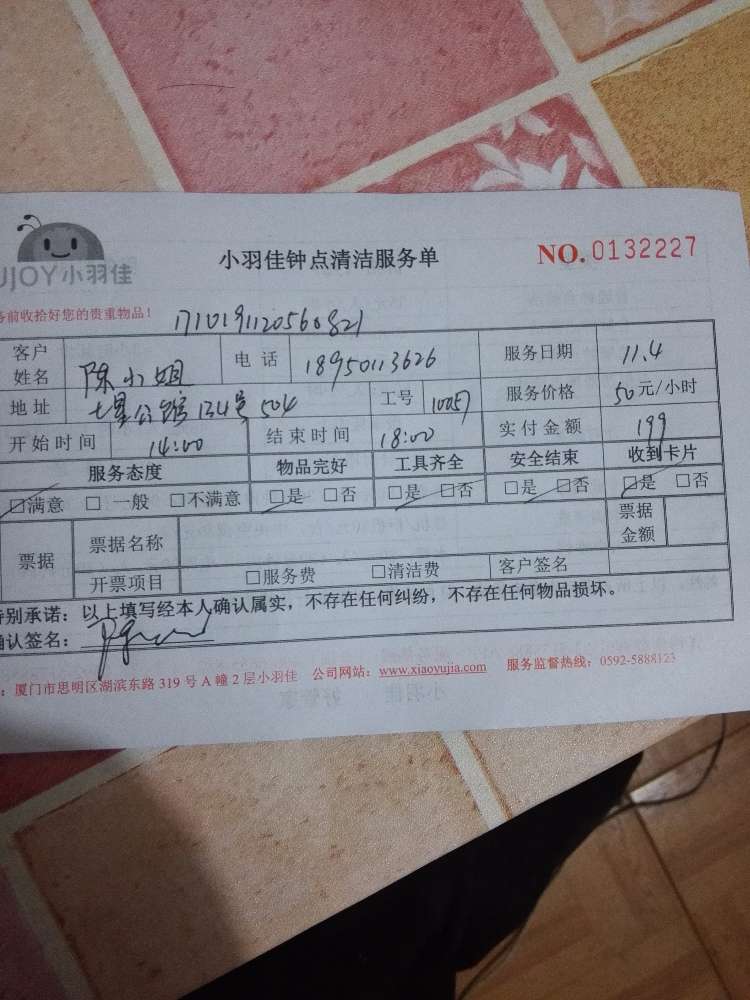 UJOY小羽佳
小羽佳钟点清洁服务单
NO.0132227
务前收拾好您的贵重物品！
1710191120560821
客户姓名 陈小姐 电话 18950113626 服务日期 11.4
地址 七星公馆134号504 工号 10057 服务价格 50元/小时
开始时间 14:00 结束时间 18:00 实付金额 199
服务态度 物品完好 工具齐全 安全结束 收到卡片
□满意 □一般 □不满意 □是 □否 □是 □否 □是 □否 □是 □否
票据 票据名称 票据金额
开票项目 □服务费 □清洁费 客户签名
特别承诺：以上填写经本人确认属实，不存在任何纠纷，不存在任何物品损坏。
确认签名：
：厦门市思明区湖滨东路319号A幢2层小羽佳 公司网站：www.xiaoyujia.com 服务监督热线：0592-5888123